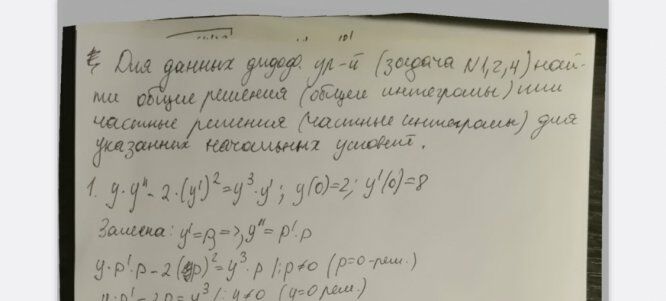 Для данных дифф. ур-й (задача N1,2,4) най-
ти общие решения (общие интегралы) или
частные решения (частные интегралы) для
указанных начальных условий.
1. y·y'' - 2·(y')² = y³·y'; y(0)=2; y'(0)=8
Замена: y'=p=>, y''=p'·p
y·p'·p - 2(p)² = y³·p /: p≠0 (p=0-реш.)
y·p' - 2p = y³ /: y≠0 (y=0 реш.)